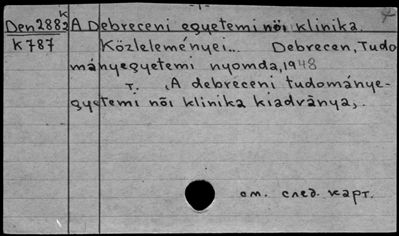 Den 2882k A Debreceni egyetemi női klinika.
K787 Közleleményei... Debrecen, Tudo
mányegyetemi nyomda, 1948
т. , A debreceni tudománye-
gyetemi női klinika kiadványa,.
см. след. карт.